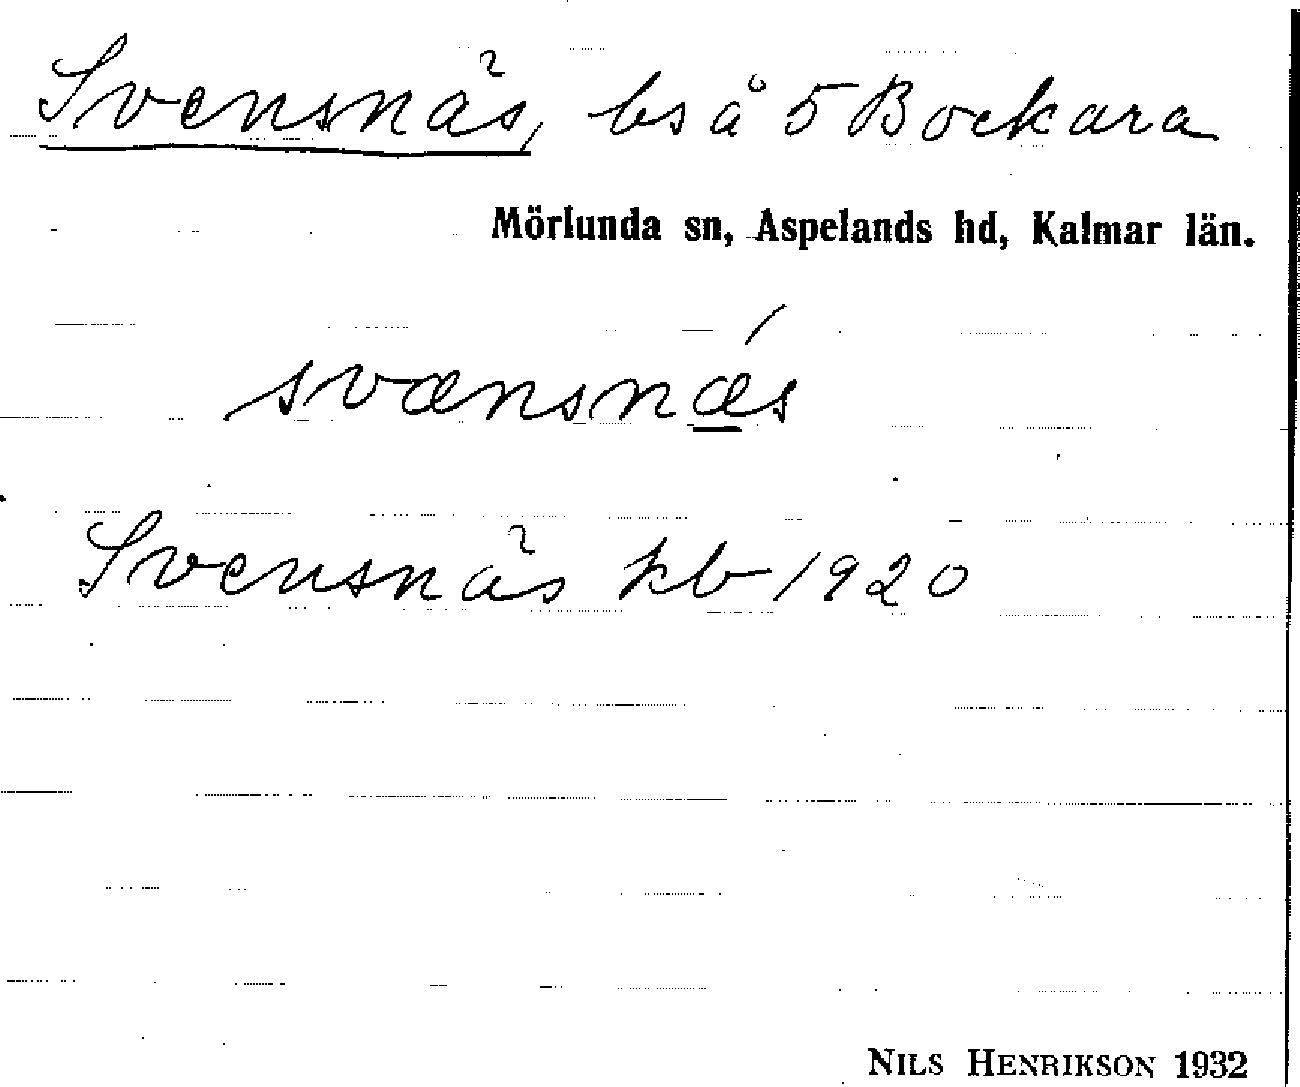 Svensnäs, bs å 5 Bockara
Mörlunda sn, Aspelands hd, Kalmar län.
svænsnǽs
Svensnäs kb 1920
NILS HENRIKSON 1932